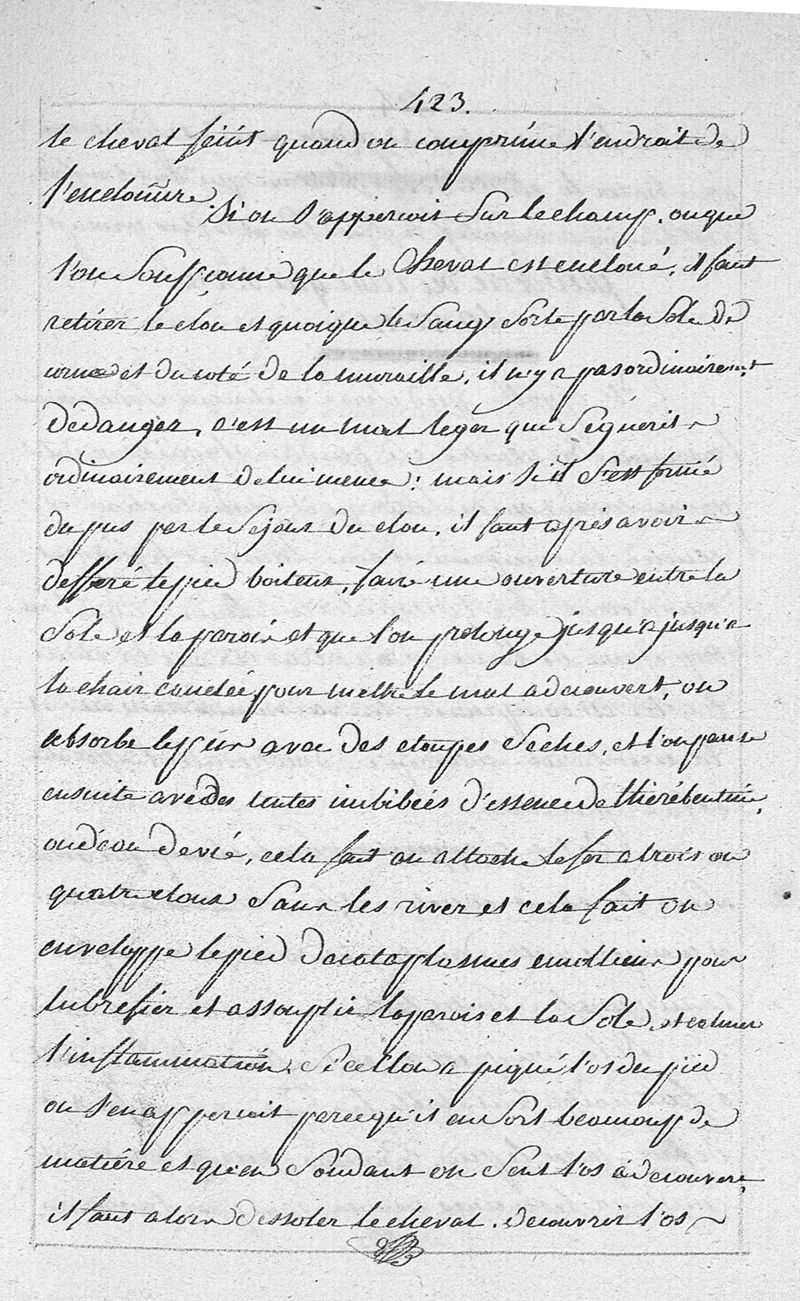 423.
le cheval feint quand on comprime l'endroit de
l'encloüre
Si on s'apperçoit sur le champ, ou que
l'on soupçonne que le cheval est encloué, il faut
retirer le clou et quoique le sang sorte par la sole de
corne et du coté de la muraille, il n'y a pas ordinairement
de danger, c'est un mal leger qui se guérit
ordinairement de lui meme : mais si il s'est formé
du pus par le sejour du clou, il faut apres avoir
desferé le pied boiteux, faire une ouverture entre la
sole et la paroi et que l'on prolonge jusqu'a jusqu'a
la chair canelée pour mettre le mal a decouvert, on
absorbe le pus avec des etoupes seches, et l'on panse
ensuite avec des tentes imbibées d'essence de thierébentine
ou d'eau de vie, cela fait on attache le fer a trois ou
quatre clous sans les river et cela fait on
enveloppe le pied de cataplasmes emolliens pour
lubrefier et assouplir la parois et la sole, et calmer
l'inflammation. Si ce clou a piqué l'os du pied
on s'en apperçoit parcequ'il en sort beaucoup de
matiére et qu'en sondant on sent l'os a decouvert,
il faut alors dessoler le cheval. decouvrir l'os